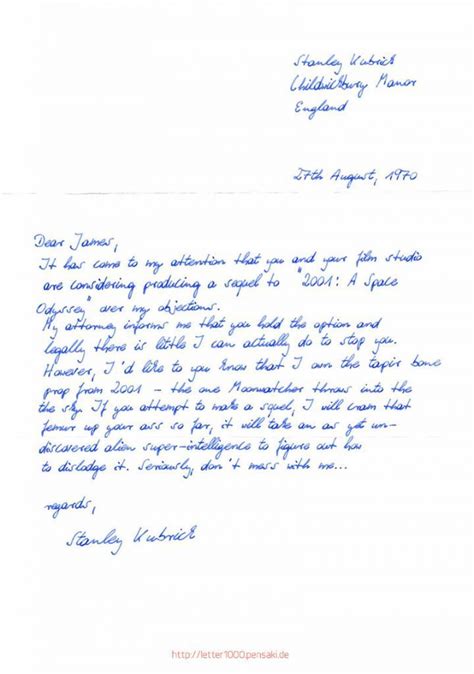 Stanley Kubrick
Childwickbury Manor
England
27th August, 1970
Dear James,
It has come to my attention that you and your film studio
are considering producing a sequel to "2001: A Space
Odyssey" over my objections.
My attorney informs me that you hold the option and
legally there is little I can actually do to stop you.
However, I'd like to you know that I own the tapir bone
prop from 2001 – the one Moonwatcher throws into the
the sky. If you attempt to make a squel, I will cram that
femur up your ass so far, it will take an as yet un-
discovered alien super-intelligence to figure out how
to dislodge it. Seriously, don't mess with me...
regards,
Stanley Kubrick
http://letter1000.pensaki.de